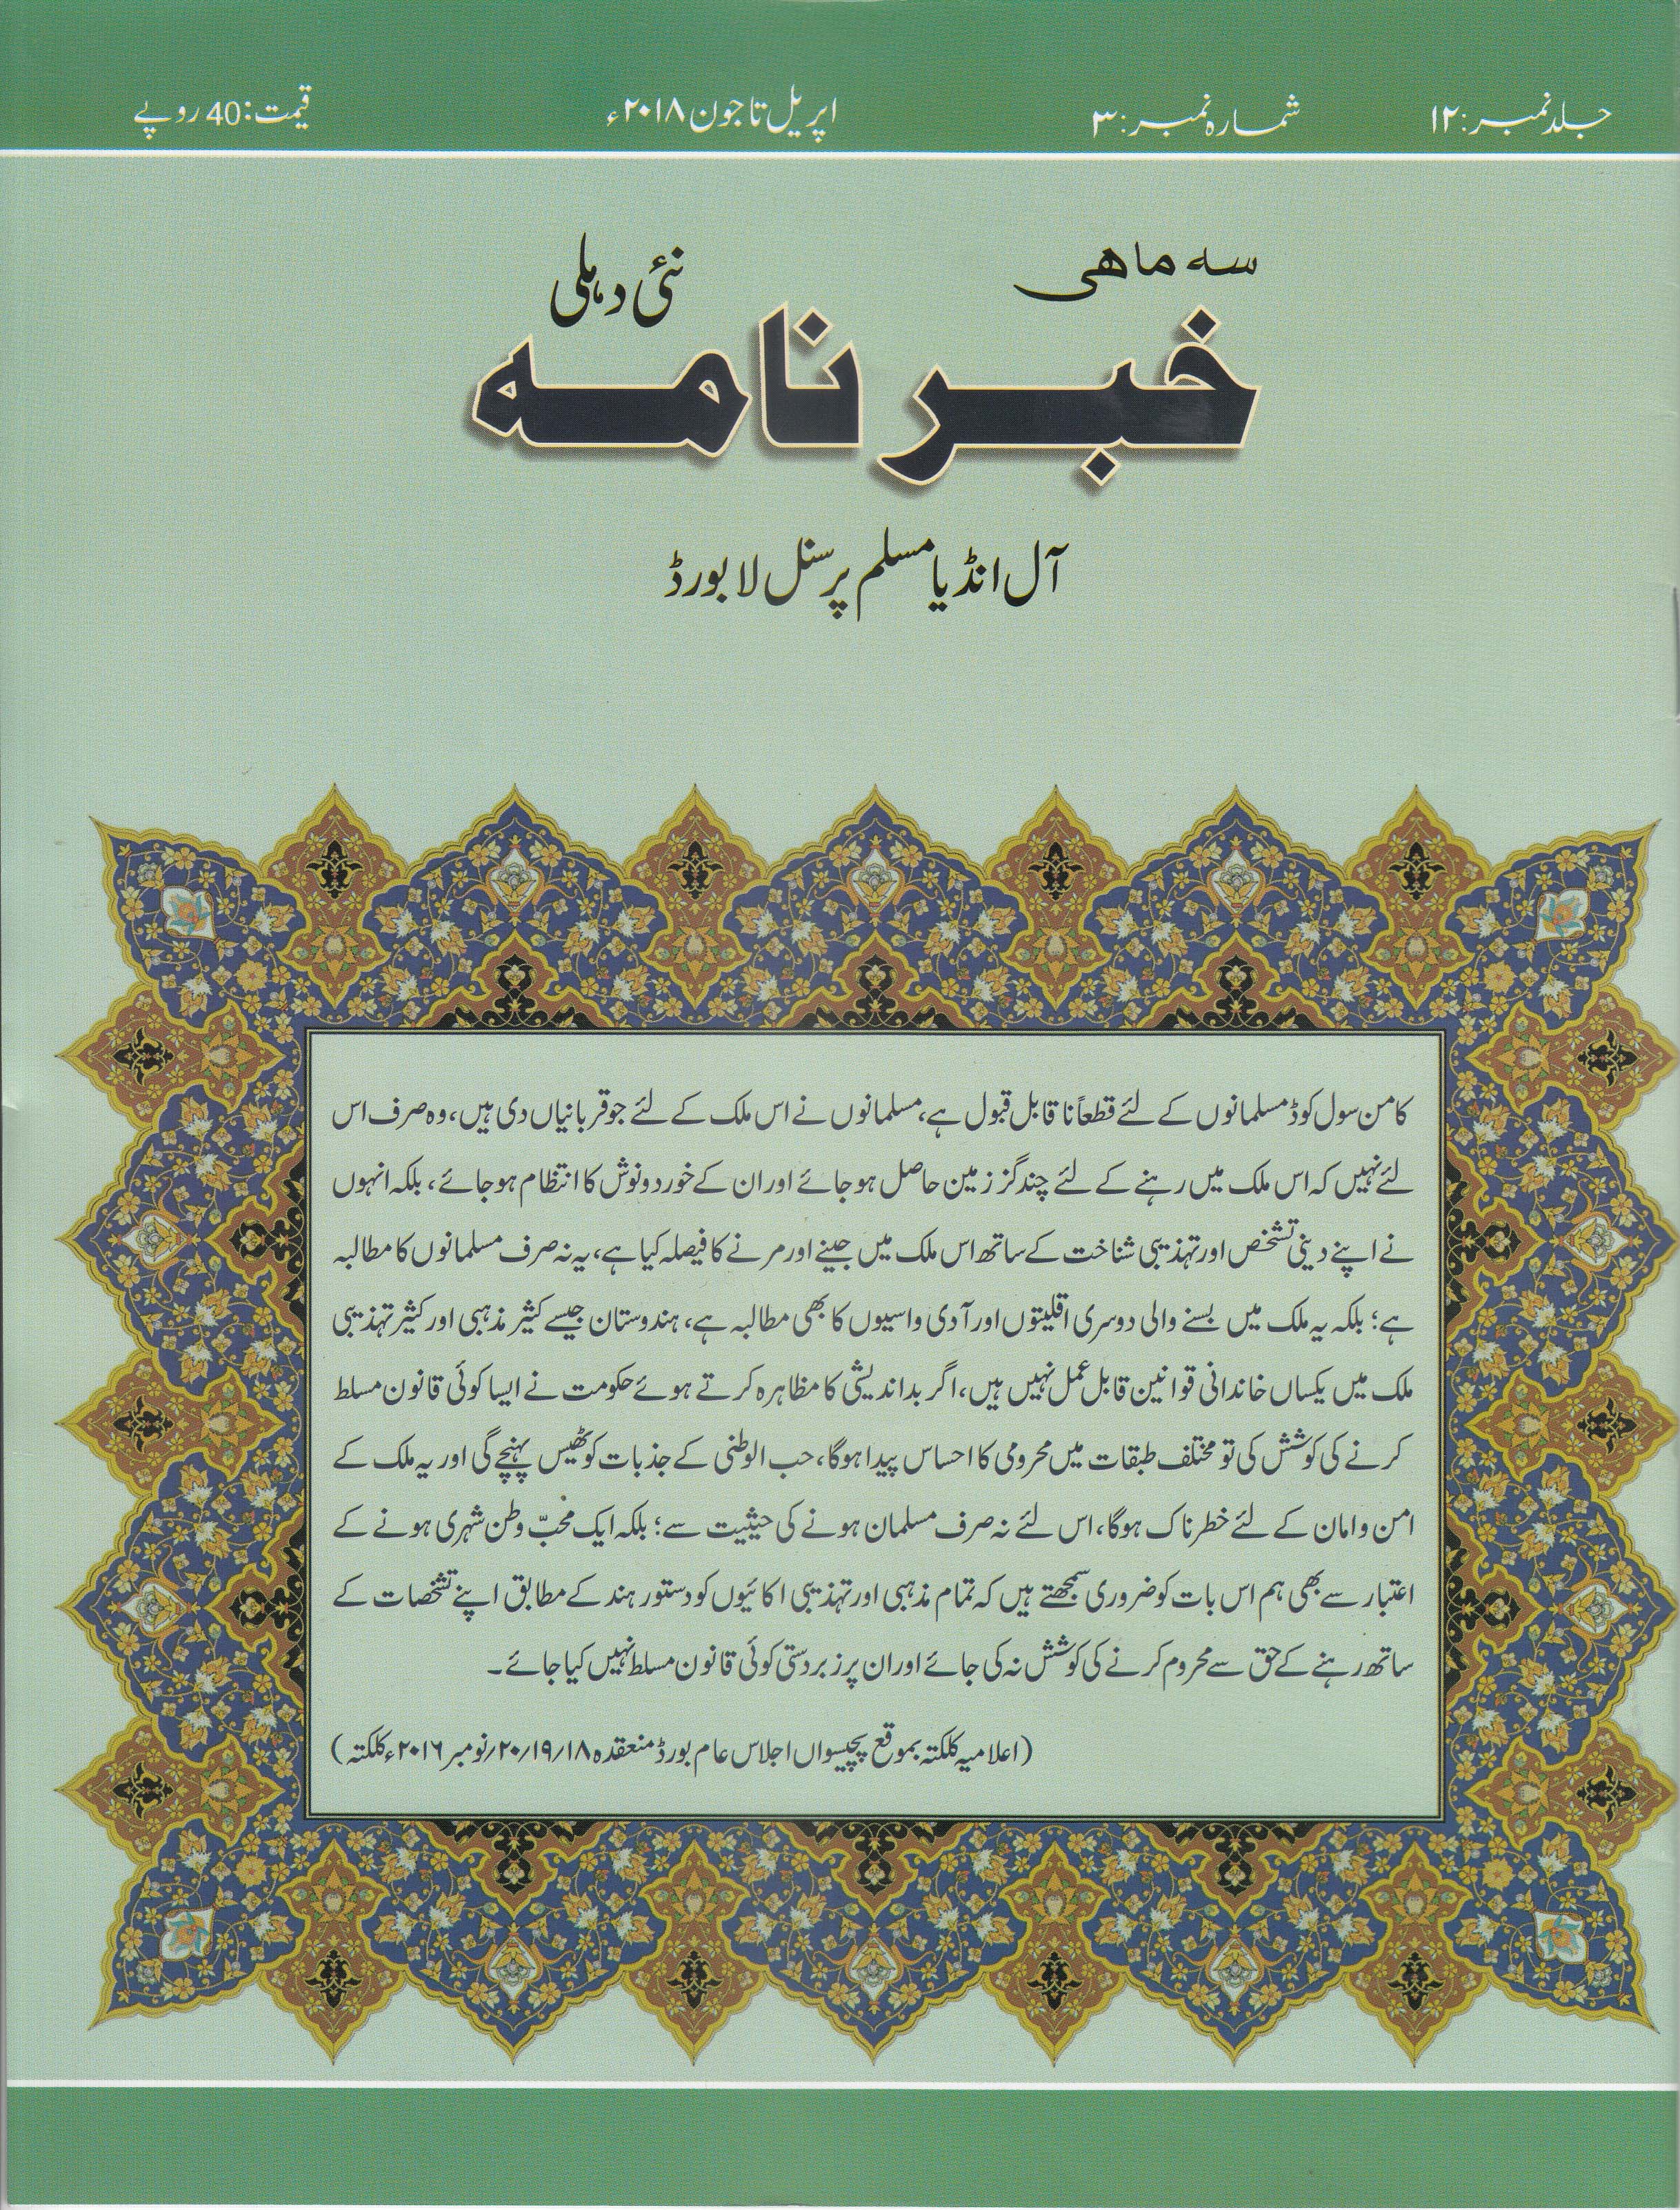 جلد نمبر: ۱۲ شمارہ نمبر: ۳ اپریل تا جون ۲۰۱۸ء قیمت: 40 روپے
سہ ماھی نئی دہلی
خبر نامہ
آل انڈیا مسلم پرسنل لا بورڈ
کامن سول کوڈ مسلمانوں کے لئے قطعاً نا قابل قبول ہے، مسلمانوں نے اس ملک کے لئے جو قربانیاں دی ہیں، وہ صرف اس
لئے نہیں کہ اس ملک میں رہنے کے لئے چند گز زمین حاصل ہو جائے اور ان کے خورد و نوش کا انتظام ہو جائے، بلکہ انہوں
نے اپنے دینی تشخص اور تہذیبی شناخت کے ساتھ اس ملک میں جینے اور مرنے کا فیصلہ کیا ہے، یہ نہ صرف مسلمانوں کا مطالبہ
ہے؛ بلکہ یہ ملک میں بسنے والی دوسری اقلیتوں اور آدی واسیوں کا بھی مطالبہ ہے، ہندوستان جیسے کثیر مذہبی اور کثیر تہذیبی
ملک میں یکساں خاندانی قوانین قابل عمل نہیں ہیں، اگر بداندیشی کا مظاہرہ کرتے ہوئے حکومت نے ایسا کوئی قانون مسلط
کرنے کی کوشش کی تو مختلف طبقات میں محرومی کا احساس پیدا ہوگا، حب الوطنی کے جذبات کو ٹھیس پہنچے گی اور یہ ملک کے
امن و امان کے لئے خطرناک ہوگا، اس لئے نہ صرف مسلمان ہونے کی حیثیت سے؛ بلکہ ایک محبّ وطن شہری ہونے کے
اعتبار سے بھی ہم اس بات کو ضروری سمجھتے ہیں کہ تمام مذہبی اور تہذیبی اکائیوں کو دستور ہند کے مطابق اپنے تشخصات کے
ساتھ رہنے کے حق سے محروم کرنے کی کوشش نہ کی جائے اور ان پر زبردستی کوئی قانون مسلط نہیں کیا جائے۔
(اعلامیہ کلکتہ بموقع پچیسواں اجلاس عام بورڈ منعقدہ ۱۸/۱۹/۲۰/نومبر ۲۰۱۶ء کلکتہ)